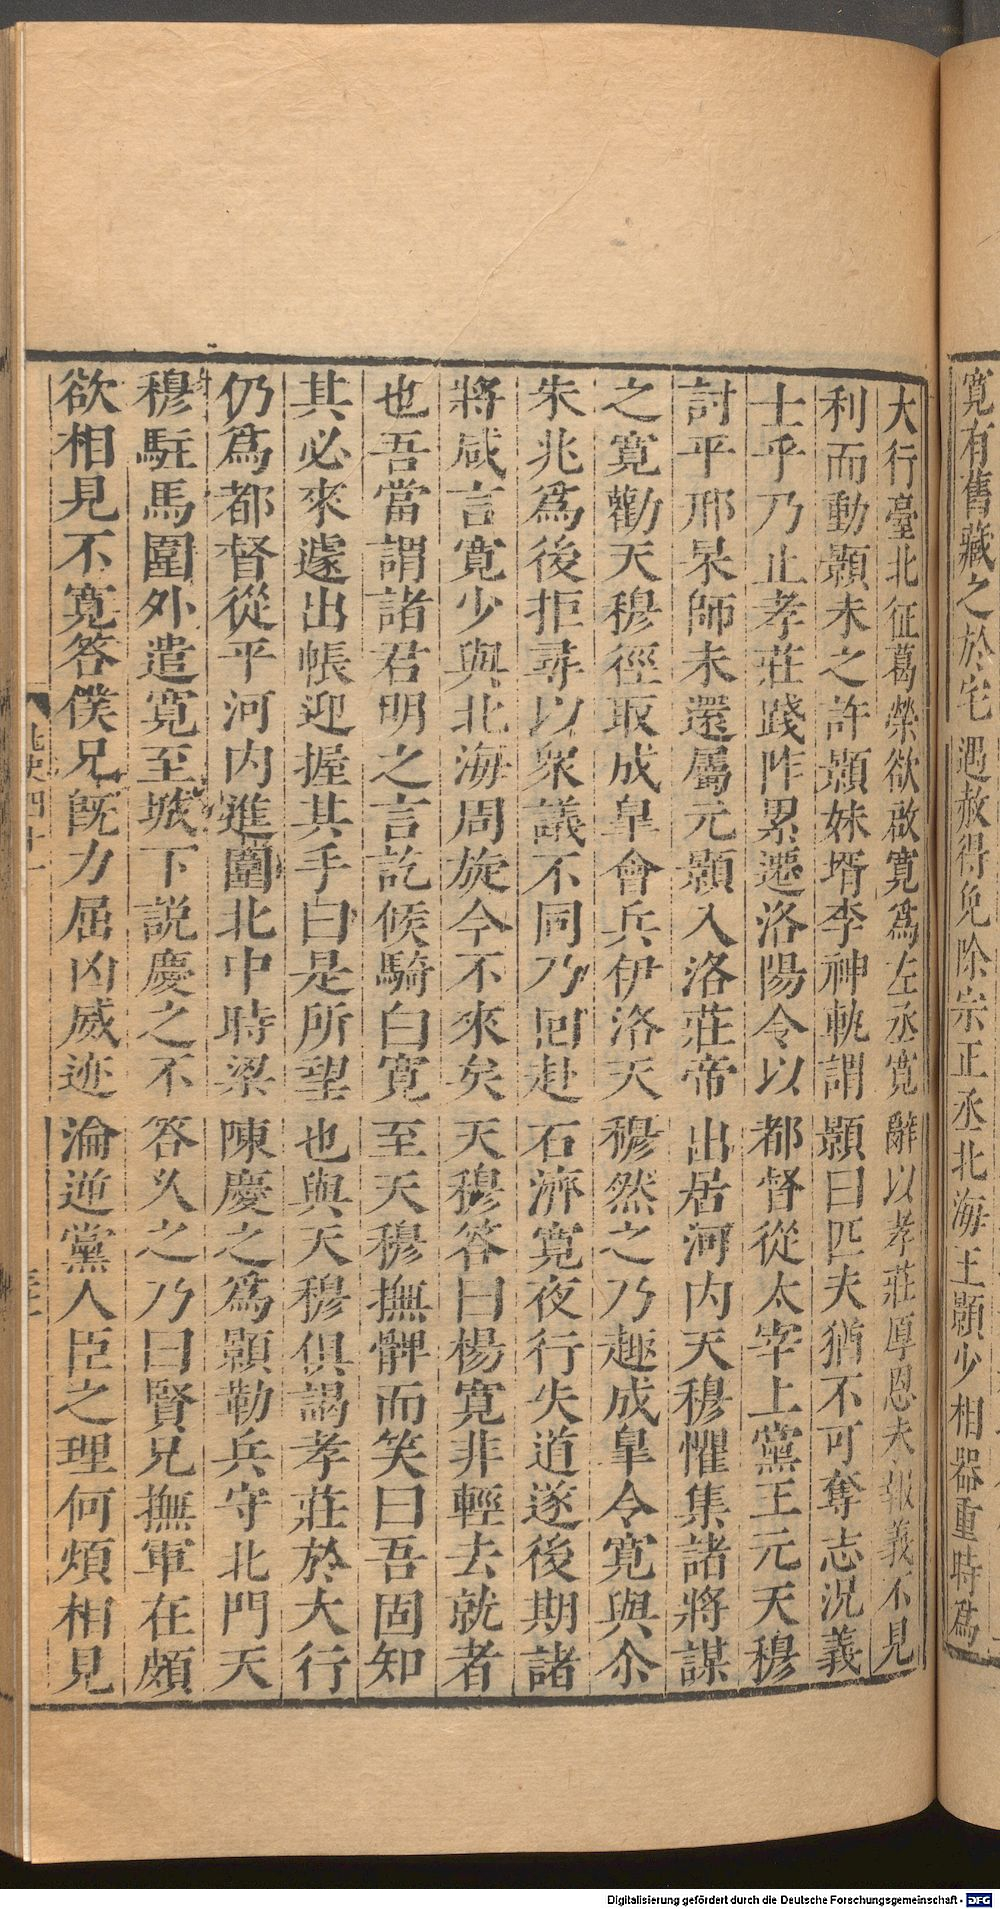 寬有舊藏之於宅遇赦得免除宗正丞北海王顥少相器重時爲
大行臺北征葛榮欲啟寬爲左丞寬辭以孝莊厚恩未報義不見
利而動顥未之許顥妹壻李神軌謂顥曰匹夫猶不可奪志況義
士乎乃止孝莊踐阼累遷洛陽令以都督從太宰上黨王元天穆
討平邢杲師未還屬元顥入洛莊帝出居河内天穆懼集諸將謀
之寛勸天穆徑取成臯會兵伊洛天穆然之乃趣成臯令寛與尒
朱兆爲後拒尋以衆議不同乃囘赴石濟寛夜行失道遂後期諸
將咸言寛少與北海周旋今不來矣天穆答曰楊寛非輕去就者
也吾當謂諸君明之言訖候騎白寛至天穆撫髀而笑曰吾固知
其必來遽出帳迎握其手曰是所望也與天穆俱謁孝莊於大行
仍爲都督從平河内進圍北中時梁陳慶之爲顥勒兵守北門天
穆駐馬圍外遣寛至城下説慶之不答久之乃曰賢兄撫軍在頗
欲相見不寛答僕兄旣力屈凶威迹淪逆黨人臣之理何煩相見
北史四十一
Digitalisierung gefördert durch die Deutsche Forschungsgemeinschaft - DFG